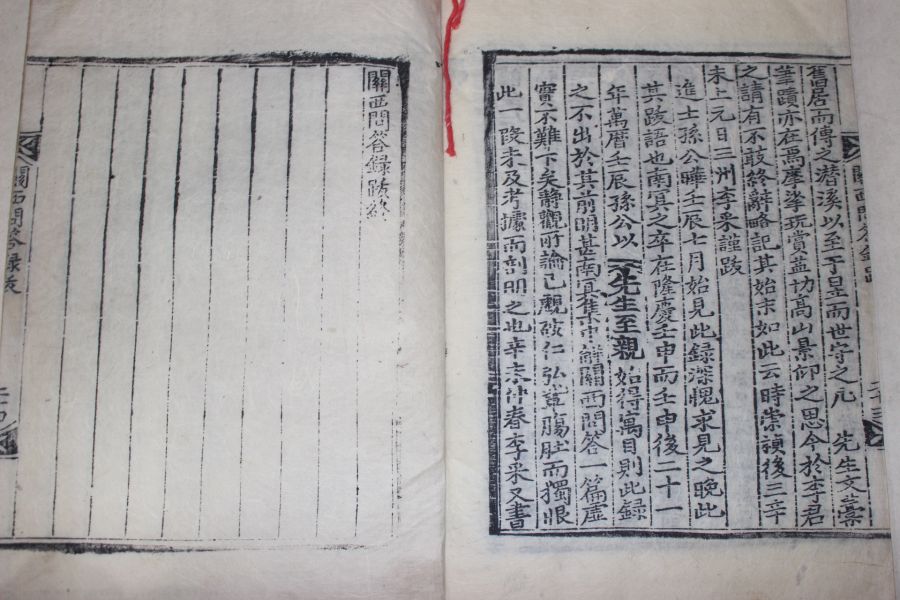 舊居而傳之潛溪以至于昰而世守之凡 先生文藁
筆蹟亦在焉摩挲玩賞益切高山景仰之思今於李君
之請有不敢終辭略記其始末如此云時崇禎後三辛
未上元日三州李采謹跋
進士孫公曄壬辰七月始見此録深愧求見之晚此
其跋語也南冥之卒在隆慶壬申而壬申後二十一
年萬曆壬辰孫公以 先生至親 始得寓目則此録
之不出於其前明甚南冥集中解關西問答一篇虛
實不難下矣靜觀所論已觑破仁弘 膓肚而獨恨
此一段未及考據而剖明之也辛未仲春李采又書
關西問答録跋
關西問答録跋終
關西問答録跋
二十四